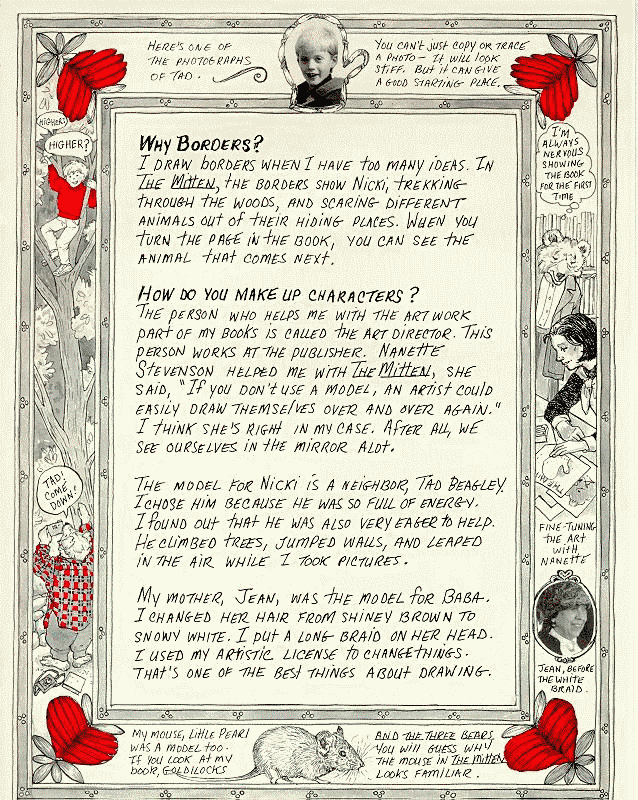 HERE'S ONE OF
THE PHOTOGRAPHS
OF TAD.
YOU CAN'T JUST COPY OR TRACE
A PHOTO — IT WILL LOOK
STIFF. BUT IT CAN GIVE
A GOOD STARTING PLACE.
HIGHER?
HIGHER?
I'M
ALWAYS
NERVOUS
SHOWING
THE BOOK
FOR THE FIRST
TIME
WHY BORDERS?
I DRAW BORDERS WHEN I HAVE TOO MANY IDEAS. IN
THE MITTEN, THE BORDERS SHOW NICKI, TREKKING
THROUGH THE WOODS, AND SCARING DIFFERENT
ANIMALS OUT OF THEIR HIDING PLACES. WHEN YOU
TURN THE PAGE IN THE BOOK, YOU CAN SEE THE
ANIMAL THAT COMES NEXT.
HOW DO YOU MAKE UP CHARACTERS?
THE PERSON WHO HELPS ME WITH THE ART WORK
PART OF MY BOOKS IS CALLED THE ART DIRECTOR. THIS
PERSON WORKS AT THE PUBLISHER. NANETTE
STEVENSON HELPED ME WITH THE MITTEN, SHE
SAID, "IF YOU DON'T USE A MODEL, AN ARTIST COULD
EASILY DRAW THEMSELVES OVER AND OVER AGAIN."
I THINK SHE'S RIGHT IN MY CASE. AFTER ALL, WE
SEE OURSELVES IN THE MIRROR ALOT.
THE MODEL FOR NICKI IS A NEIGHBOR, TAD BEAGLEY.
I CHOSE HIM BECAUSE HE WAS SO FULL OF ENERGY.
I FOUND OUT THAT HE WAS ALSO VERY EAGER TO HELP.
HE CLIMBED TREES, JUMPED WALLS, AND LEAPED
IN THE AIR WHILE I TOOK PICTURES.
MY MOTHER, JEAN, WAS THE MODEL FOR BABA.
I CHANGED HER HAIR FROM SHINEY BROWN TO
SNOWY WHITE. I PUT A LONG BRAID ON HER HEAD.
I USED MY ARTISTIC LICENSE TO CHANGE THINGS.
THAT'S ONE OF THE BEST THINGS ABOUT DRAWING.
TAD!
COME
DOWN!
FINE-TUNING
THE ART
WITH
NANETTE
JEAN, BEFORE
THE WHITE
BRAID.
MY MOUSE, LITTLE PEARL
WAS A MODEL TOO.
IF YOU LOOK AT MY
BOOK, GOLDILOCKS
AND THE THREE BEARS,
YOU WILL GUESS WHY
THE MOUSE IN THE MITTEN
LOOKS FAMILIAR.